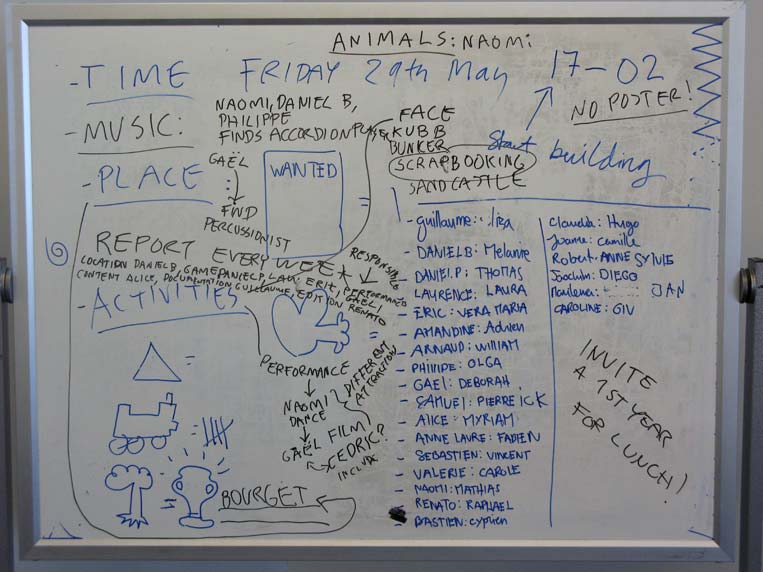 ANIMALS: NAOMI
- TIME FRIDAY 29th May 17-02
NO POSTER!
- MUSIC:
NAOMI, DANIEL B,
PHILIPPE
FINDS ACCORDION PLAYER
GAËL
:
FIND
PERCUSSIONIST
FACE
KUBB
BUNKER
SCRAPBOOKING
SANDCASTLE
Start building
- PLACE :
WANTED
=
REPORT EVERY WEEK
RESPONSIBLE
LOCATION DANIEL B, GAME DANIEL P, LAU, ERIC, PERFORMANCE GAEL,
CONTENT ALICE, DOCUMENTATION GUILLAUME, EDITION RENATO
- ACTIVITIES
=
=
=
PERFORMANCE
NAOMI
DANCE
DIFFERENT
ATTRACTION
GAËL FILM
CEDRIC?
INCLUDE
BOURGET
- guillaume: lisa
- DANIEL B: Melanie
- DANIEL.P: THOMAS
- LAURENCE: LAURA
- ERIC: VERA MARIA
- AMANDINE: Adrien
- ARNAUD: WILLIAM
- PHILIPE: OLGA
- GAEL: DEBORAH
- SAMUEL: PIERRICK
- ALICE: MYRIAM
- ANNE LAURE: FABIEN
- SEBASTIEN: VINCENT
- VALERIE: CAROLE
- NAOMI: MATHIAS
- RENATO: RAPHAEL
- BASTIEN: cyprien
Claudia: Hugo
Joanne: camille
Robert: ANNE SYLVIE
Joachim: DIEGO
JAN
CAROLINE: GIV
INVITE
A 1ST YEAR
FOR LUNCH!